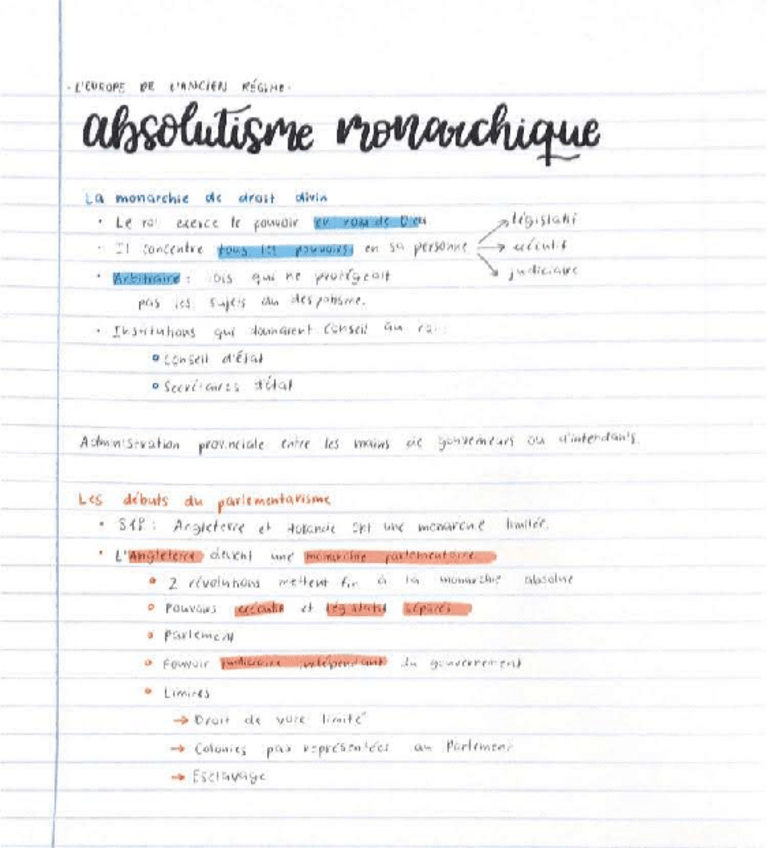 - L'EUROPE DE L'ANCIEN RÉGIME -
absolutisme monarchique
La monarchie de droit divin
• Le roi exerce le pouvoir en nom de Dieu → législatif
• Il concentre tous les pouvoirs en sa personne → exécutif
→ judiciaire
• Arbitraire : lois qui ne protégeait
pas les sujets du despotisme.
• Institutions qui donnaient conseil au roi :
Conseil d'État
Secrétaires d'état
Administration provinciale entre les mains de gouverneurs ou d'intendants.
Les débuts du parlementarisme
• Angleterre et Hollande ont une monarchie limitée.
• L'Angleterre devient une monarchie parlementaire
2 révolutions mettent fin à la monarchie absolue
Pouvoirs exécutif et législatif séparés
Parlement
Pouvoir judiciaire indépendant du gouvernement
Limites
→ Droit de vote limité
→ Colonies pas représentées au Parlement
→ Esclavage